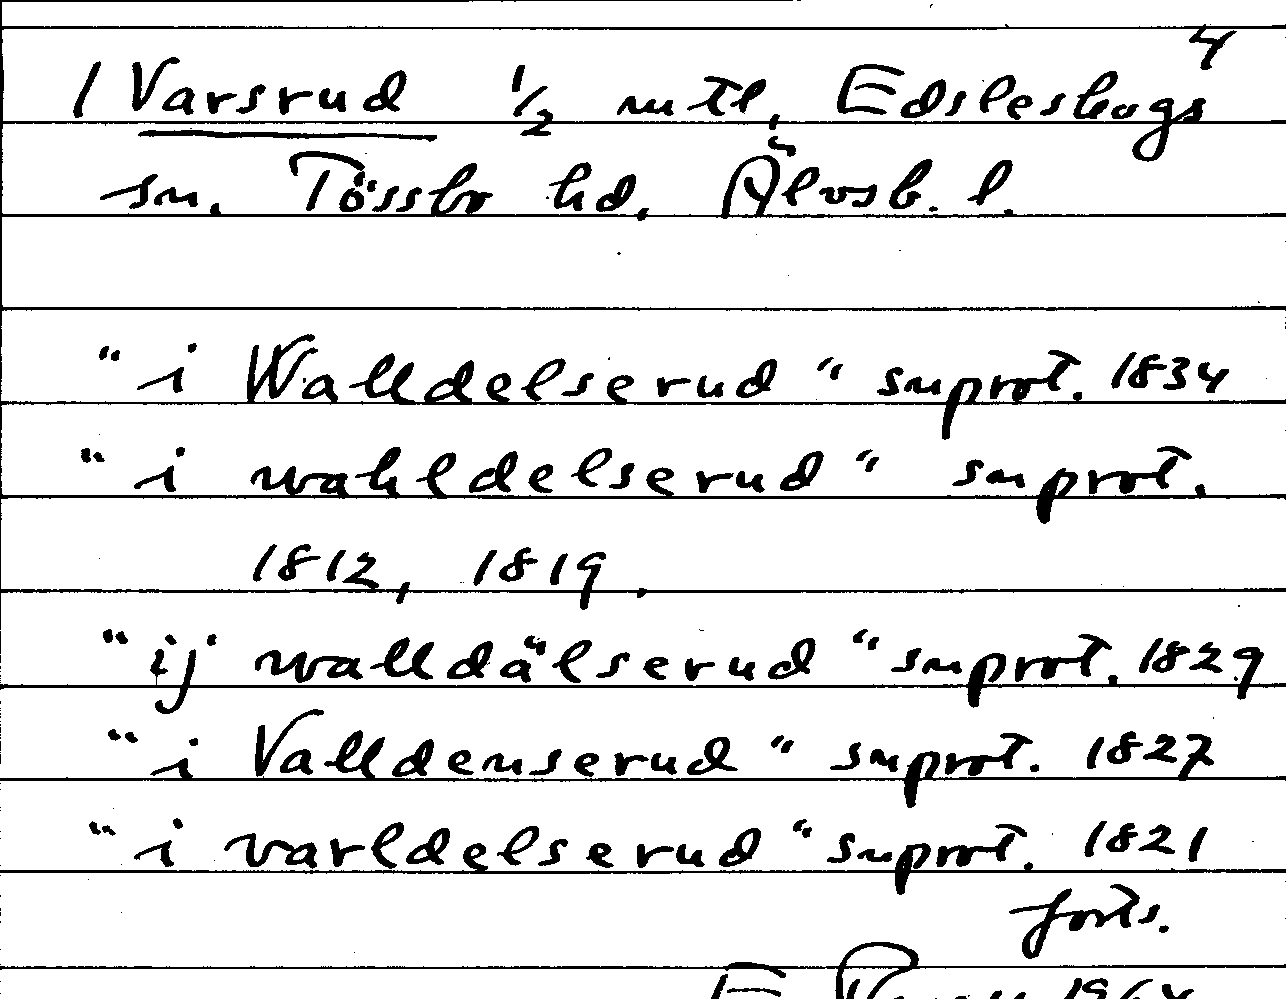 4
/ Varsrud ½ mtl, Edsleskogs
sn. Tössbo hd, Älvsb. l.
"i Walldelserud" snprot. 1834
"i wahldelserud" snprot.
1812, 1819.
"ij walldälserud" snprot. 1829
"i Valldenserud" snprot. 1827
"i varldelserud" snprot. 1821
forts.